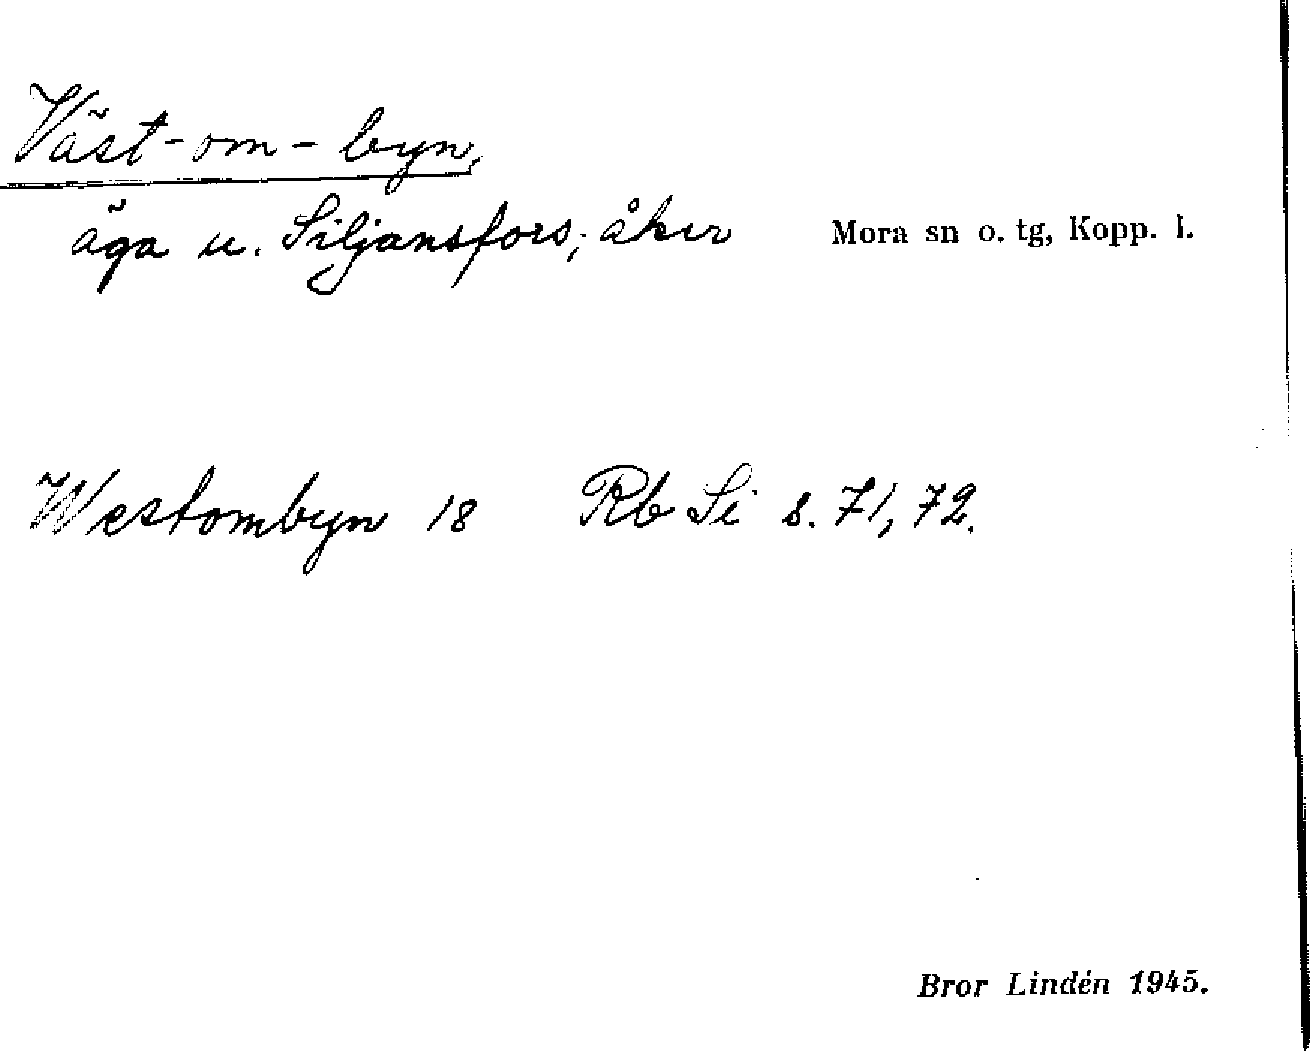 Väst-om-byn,
äga u. Siljansfors; åker Mora sn o. tg, Kopp. l.
Westombyn 18 Rb Si s. 71, 72.
Bror Lindén 1945.